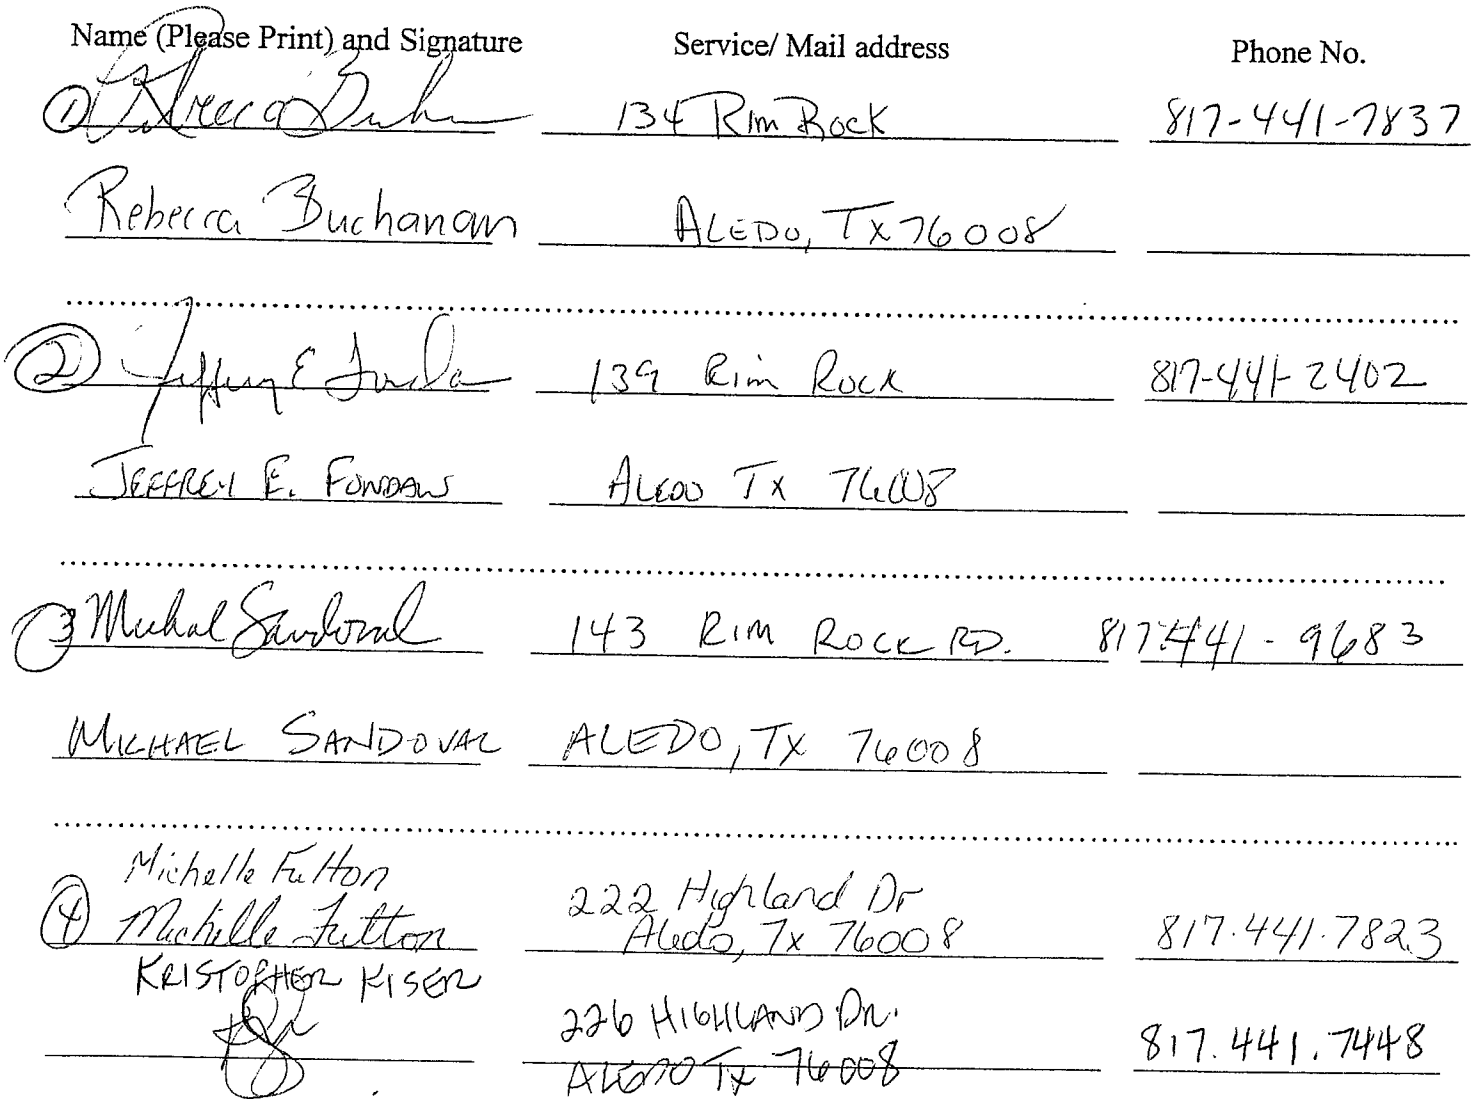 Name (Please Print) and Signature Service/ Mail address Phone No.
① Rebecca 134 Rim Rock 817-441-7837
Rebecca Buchanan ALEDO, TX 76008
② Jeffrey E 139 Rim Rock 817-441-2402
JEFFREY E. ALEDO TX 76008
③ Michael Sandoval 143 RIM ROCK RD. 817-441-9683
MICHAEL SANDOVAL ALEDO, TX 76008
Michelle Fulton 222 Highland Dr
④ Michelle Fulton Aledo, Tx 76008 817.441.7823
KRISTOPHER KISER
226 HIGHLAND DR. 817.441.7448
ALEDO TX 76008